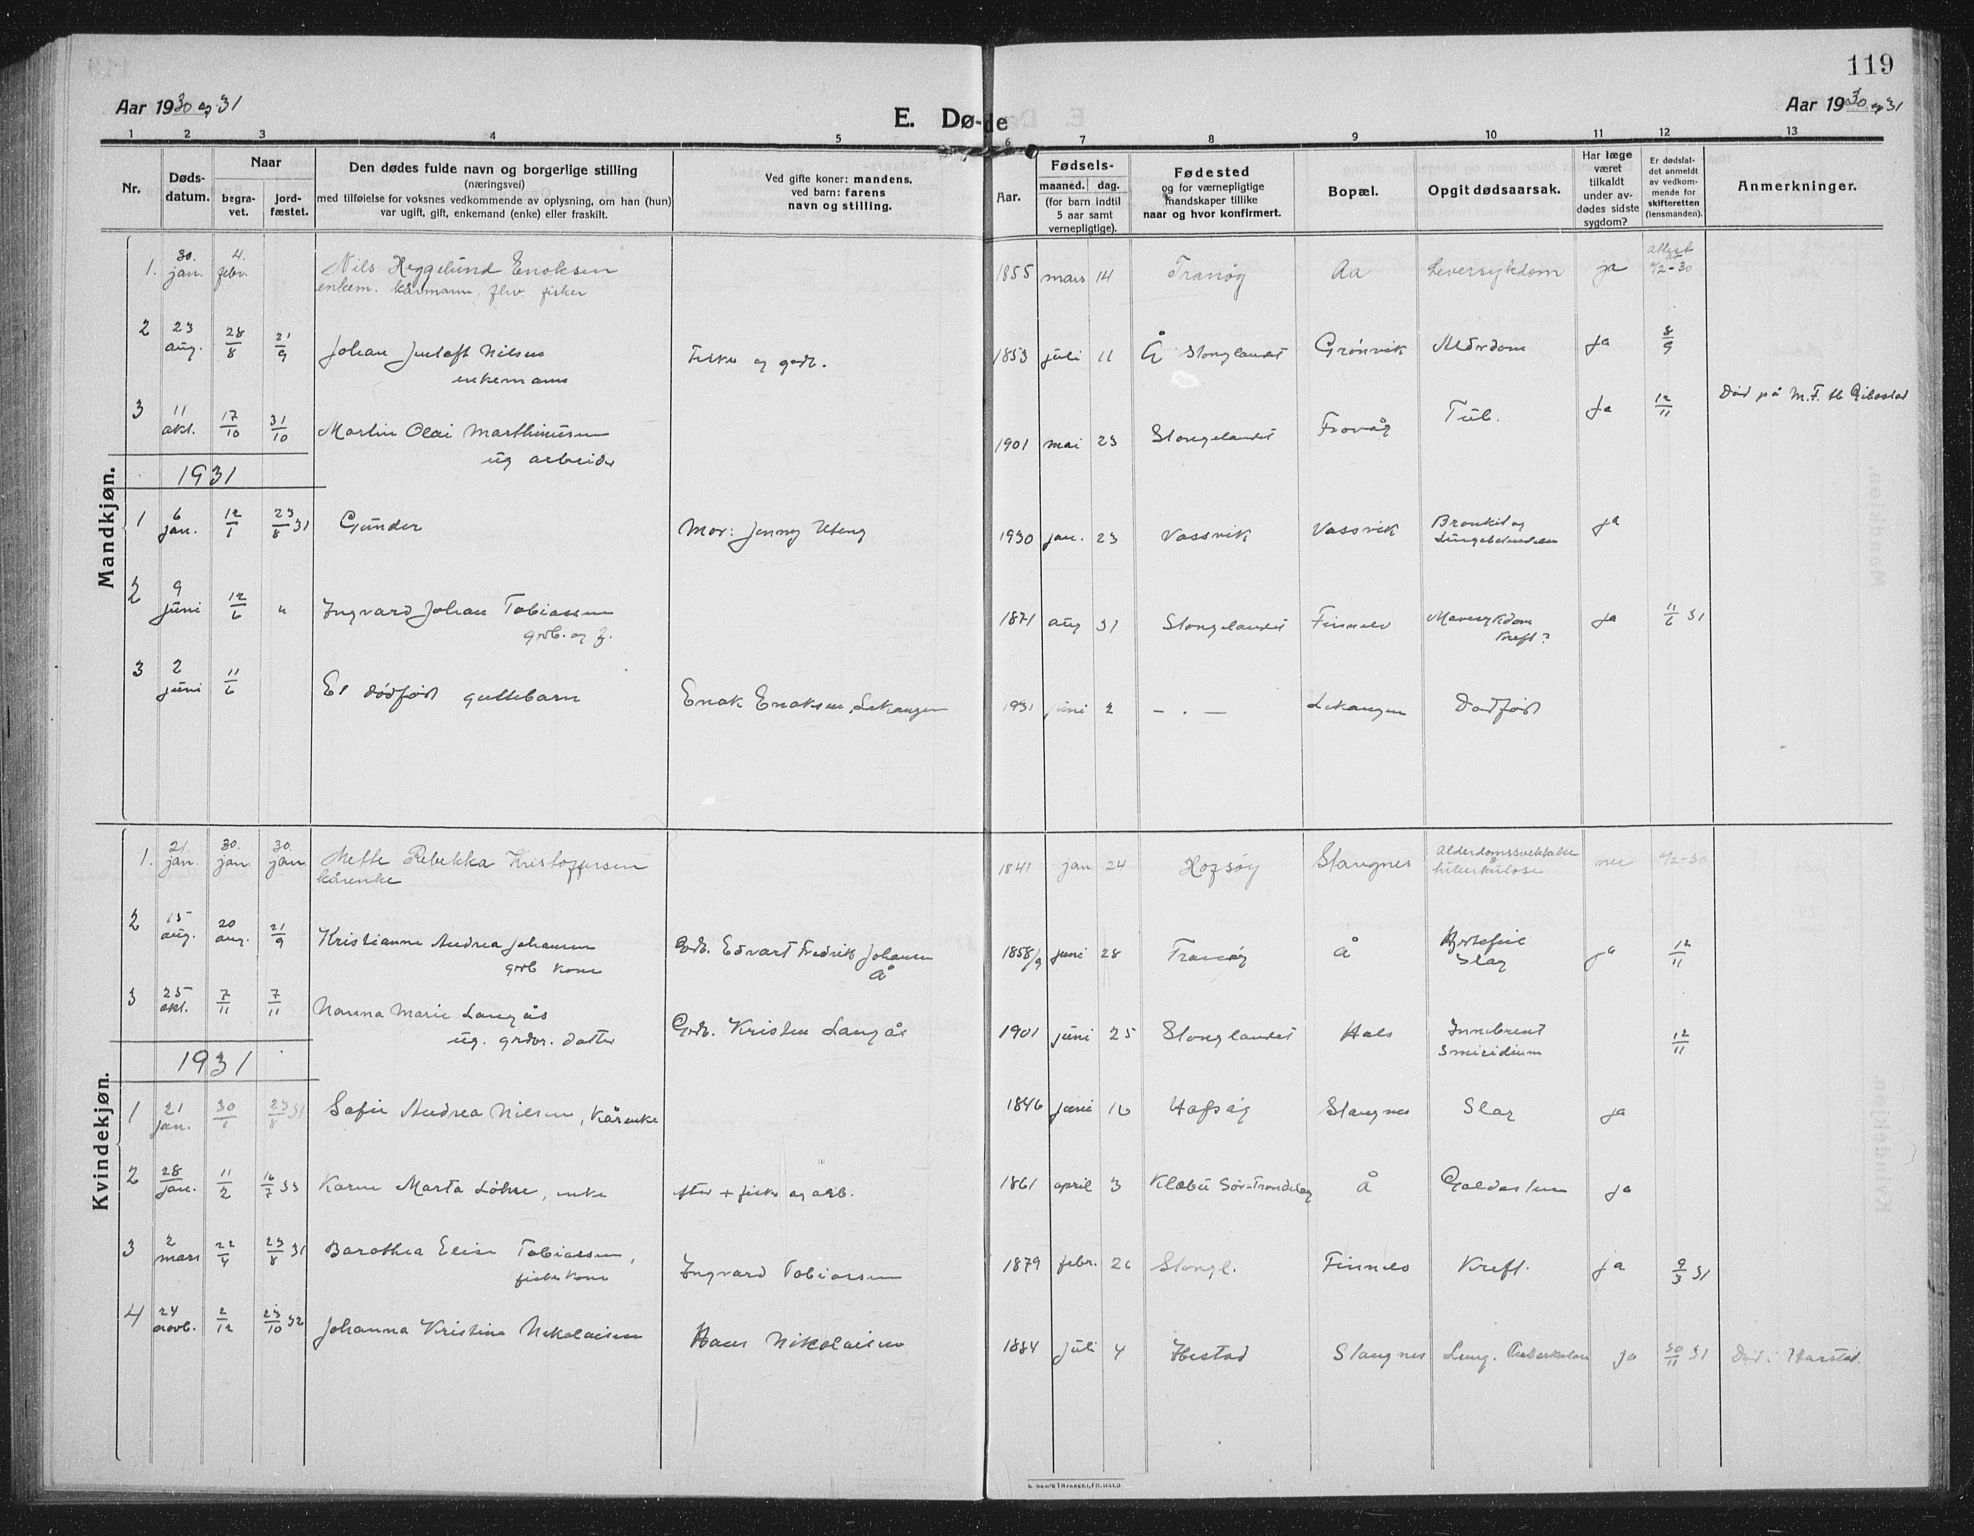 119
Aar 1930 og 31
E. Dø-de
Aar 1930 og 31
1 2 3 4 5 6 7 8 9 10 11 12 13
Nr.
Døds-datum.
Naar
begra-vet.
jord-fæstet.
Den dødes fulde navn og borgerlige stilling
(næringsvei)
med tilføielse for voksnes vedkommende av oplysning, om han (hun)
var ugift, gift, enkemand (enke) eller fraskilt.
Ved gifte koner: mandens,
ved barn: farens
navn og stilling.
Aar.
Fødsels-
maaned. dag.
(for barn indtil
5 aar samt
vernepligtige).
Fødested
og for værnepligtige
mandskaper tillike
naar og hvor konfirmert.
Bopæl.
Opgit dødsaarsak.
Har læge
været
tilkaldt
under av-
dødes sidste
sygdom?
Er dødsfal-
det anmeldt
av vedkom-
mende for
skifteretten
(lensmanden).
Anmerkninger.
Mandkjøn.
1. 30. jan. 4. febr. Nils Heggelund Enoksen 1855 mars 14 Tranøy Aa Leversykdom ja 6/2-30
enkem. kårmann, flw. fisker
2 23 aug. 28/8 21/9 Johan Nilsen Fisker og gdb. 1853 juli 11 Å Stonglandet Grønvik Alderdom Ja 8/9
enkemann
3 11 okt. 17/10 31/10 Martin Olai Marthinusen 1901 mai 23 Stongelandet Frovåg Tub. Ja 12/11 Død på M.F. Gibostad
ug arbeider
1931
1 6 jan. 12/1 23/8 31 Gunder Mor: Jenny Uteng 1930 jan. 23 Vassvik Vassvik Bronkit og ja
2 9 juni 12/6 " Ingvard Johan Tobiassen 1871 aug 31 Stongelandet Finnelv Mavesykdom Ja 11/6 31
grdb. og f. Kreft?
3 2 juni 11/6 Et dødfødt guttebarn Enok Enoksen, Lekangen 1931 juni 2 — . — Lekangen Dødfødt
Kvindekjøn.
1. 21. jan. 30. jan. 30. jan. Mette Rebekka Kristoffersen 1841 jan. 24 Hofsøy Stangnes Alderdomssvekkelse nei 6/2-30
kårenke tuberkulose
2 15 aug. 20 aug. 21/9 Kristianne Andrea Johansen Grdb. Edvart Fredrik Johansen 1858/9 juni 28 Tranøy Å Hjertefeil ja 12/11
grdb kone Å Slag
3 25 okt. 7/11 7/11 Nanna Marie Langås Grdb. Kristen Langås 1901 juni 25 Stonglandet Hals 12/11
ug. grdbr. datter
1931
1 21 jan. 30/1 23/8 31 Sofie Andrea Nilsen, Kårenke 1846 juni 16 Hofsøy Stangnes Slag ja
2 28 jan. 11/2 16/7 33 Karen Marta Løhre, enke efter + fisker og arb. 1861 april 3 Klæbu Sør-Trøndelag Å Galdesten ja
3 2 mars 22/4 23/8 31 Barothea Elise Tobiassen, Ingvard Tobiassen 1879 febr. 26 Stongl. Finnelv Kreft. ja 9/3 31
fisker kone
4 24 novb. 2/12 23/10 32 Johanna Kristine Nikolaisen Hans Nikolaisen 1884 juli 4 Hestad Stangnes Lung. Tuberkulose ja 30/11 31 Død i Harstad.